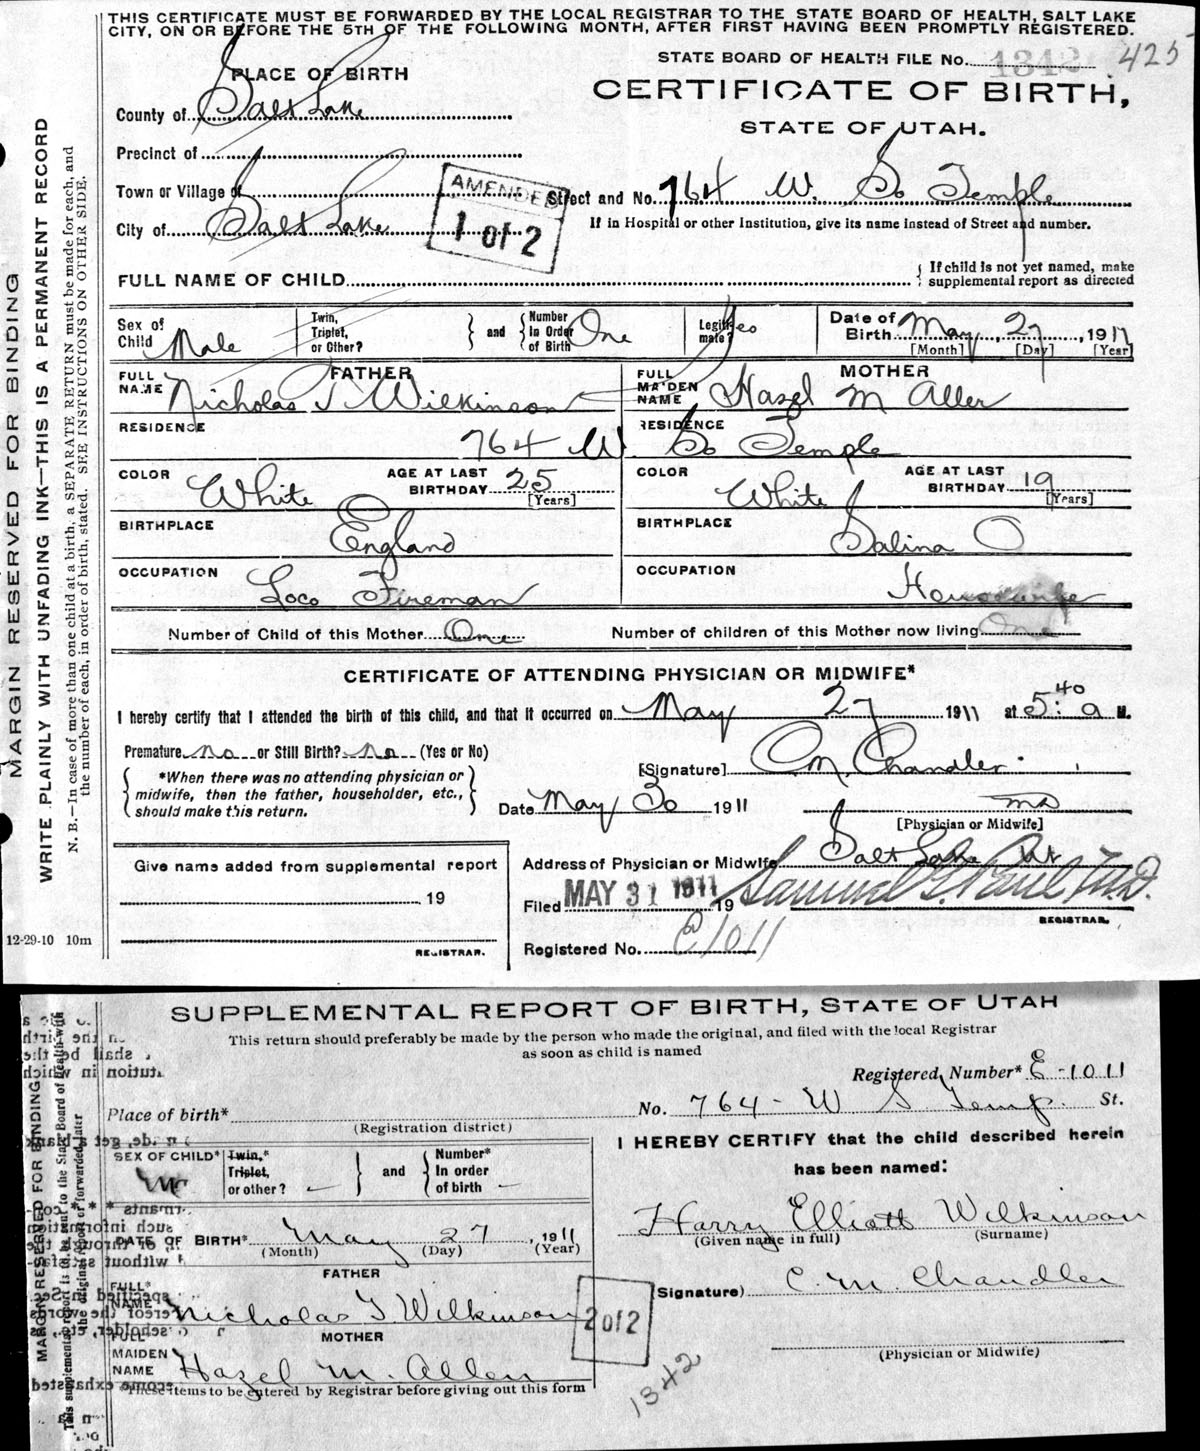 THIS CERTIFICATE MUST BE FORWARDED BY THE LOCAL REGISTRAR TO THE STATE BOARD OF HEALTH, SALT LAKE
CITY, ON OR BEFORE THE 5TH OF THE FOLLOWING MONTH, AFTER FIRST HAVING BEEN PROMPTLY REGISTERED.
STATE BOARD OF HEALTH FILE No. 1342 425
PLACE OF BIRTH
CERTIFICATE OF BIRTH,
STATE OF UTAH.
County of Salt Lake
Precinct of
Town or Village of
AMENDED
1 of 2
Street and No. 764 W. So Temple
City of Salt Lake
If in Hospital or other Institution, give its name instead of Street and number.
FULL NAME OF CHILD
If child is not yet named, make
supplemental report as directed
Sex of Child Male
Twin, Triplet, or Other?
and
Number In Order of Birth One
Legiti-mate? Yes
Date of Birth May, 27, 1911
[Month] [Day] [Year]
FATHER
FULL NAME Nicholas T Wilkinson
MOTHER
FULL MAIDEN NAME Hazel M Allen
RESIDENCE
RESIDENCE
764 W. So Temple
COLOR White
AGE AT LAST BIRTHDAY 25 [Years]
COLOR White
AGE AT LAST BIRTHDAY 19 [Years]
BIRTHPLACE England
BIRTHPLACE Salina
OCCUPATION Loco Fireman
OCCUPATION Housewife
Number of Child of this Mother One
Number of children of this Mother now living One
CERTIFICATE OF ATTENDING PHYSICIAN OR MIDWIFE*
I hereby certify that I attended the birth of this child, and that it occurred on May 27 1911 at 5:40 a M.
Premature no or Still Birth? no (Yes or No)
*When there was no attending physician or
midwife, then the father, householder, etc.,
should make this return.
[Signature] C M. Chandler
Date May 30 1911
MD
[Physician or Midwife]
Give name added from supplemental report
19
REGISTRAR.
Address of Physician or Midwife Salt Lake Ut
Filed MAY 31 1911 19 Samuel G. Paul M.D.
REGISTRAR.
Registered No. E1011
12-29-10 10m
MARGIN RESERVED FOR BINDING
WRITE PLAINLY WITH UNFADING INK—THIS IS A PERMANENT RECORD
N. B.—In case of more than one child at a birth, a SEPARATE RETURN must be made for each, and
the number of each, in order of birth, stated. SEE INSTRUCTIONS ON OTHER SIDE.
SUPPLEMENTAL REPORT OF BIRTH, STATE OF UTAH
This return should preferably be made by the person who made the original, and filed with the local Registrar
as soon as child is named
Registered Number* E-1011
Place of birth*
(Registration district)
No. 764 - W S Temp. St.
SEX OF CHILD* M
Twin,* Triplet, or other?
and
Number* In order of birth
I HEREBY CERTIFY that the child described herein
has been named:
Harry Elliott Wilkinson
(Given name in full) (Surname)
DATE OF BIRTH* May 27, 1911
(Month) (Day) (Year)
FATHER
FULL* NAME Nicholas T. Wilkinson
2 of 2
Signature) C. M. Chandler
MOTHER
FULL MAIDEN NAME Hazel M. Allen
(Physician or Midwife)
These items to be entered by Registrar before giving out this form
1342
MARGIN RESERVED FOR BINDING